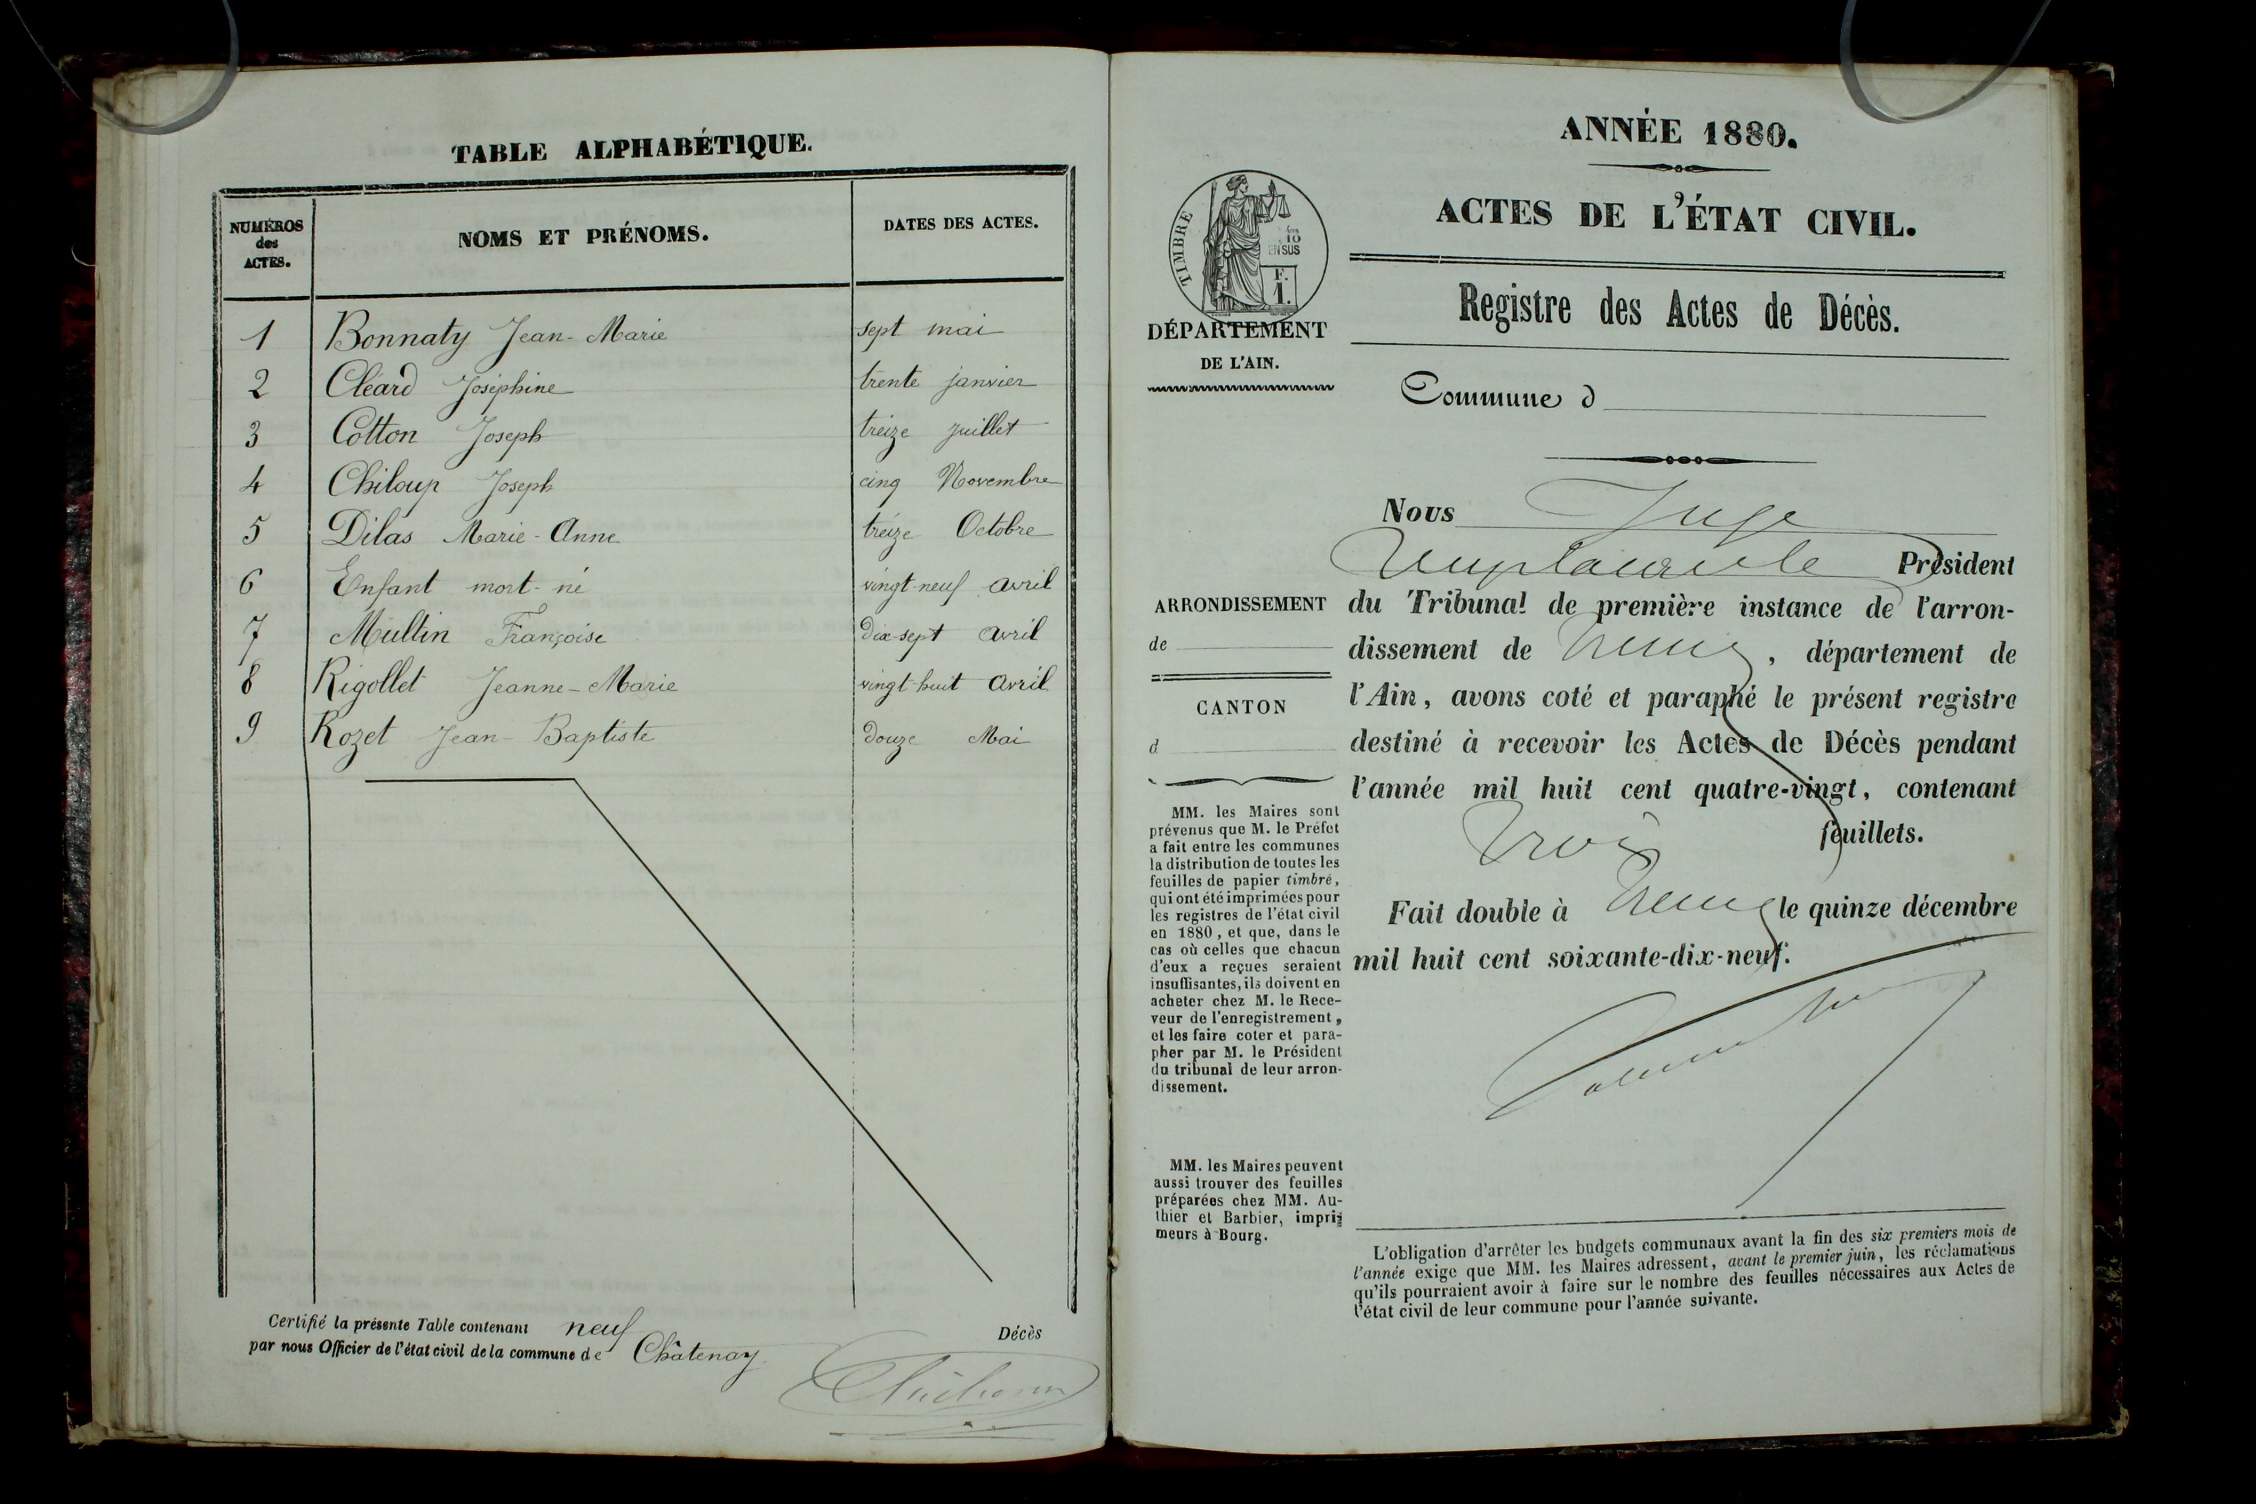 TABLE ALPHABÉTIQUE.
NUMÉROS des ACTES. NOMS ET PRÉNOMS. DATES DES ACTES.
1 Bonnaty Jean-Marie sept mai
2 Cléard Joséphine trente janvier
3 Cotton Joseph treize juillet
4 Chiloup Joseph cinq Novembre
5 Dilas Marie-Anne treize Octobre
6 Enfant mort-né vingt-neuf avril
7 Multin Françoise dix-sept avril
8 Rigollet Jeanne-Marie vingt-huit avril
9 Rozet Jean-Baptiste douze Mai
Certifié la présente Table contenant neuf Décès
par nous Officier de l'état civil de la commune de Châtenay
ANNÉE 1880.
ACTES DE L'ÉTAT CIVIL.
Registre des Actes de Décès.
Commune d
TIMBRE
10
EN SUS
F.
1.
DÉPARTEMENT
DE L'AIN.
ARRONDISSEMENT
de
CANTON
d
MM. les Maires sont
prévenus que M. le Préfet
a fait entre les communes
la distribution de toutes les
feuilles de papier timbré,
qui ont été imprimées pour
les registres de l'état civil
en 1880, et que, dans le
cas où celles que chacun
d'eux a reçues seraient
insuffisantes, ils doivent en
acheter chez M. le Rece-
veur de l'enregistrement,
et les faire coter et para-
pher par M. le Président
du tribunal de leur arron-
dissement.
MM. les Maires peuvent
aussi trouver des feuilles
préparées chez MM. Au-
thier et Barbier, impri-
meurs à Bourg.
Nous Juge
Président
du Tribunal de première instance de l'arron-
dissement de , département de
l'Ain, avons coté et paraphé le présent registre
destiné à recevoir les Actes de Décès pendant
l'année mil huit cent quatre-vingt, contenant
trois feuillets.
Fait double à le quinze décembre
mil huit cent soixante-dix-neuf.
L'obligation d'arrêter les budgets communaux avant la fin des six premiers mois de
l'année exige que MM. les Maires adressent, avant le premier juin, les réclamations
qu'ils pourraient avoir à faire sur le nombre des feuilles nécessaires aux Actes de
l'état civil de leur commune pour l'année suivante.